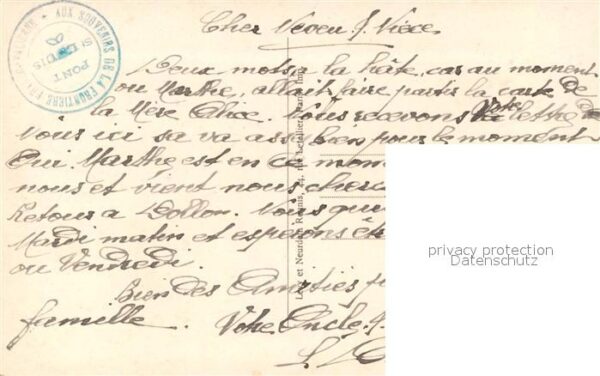 AUX SOUVENIRS DE LA FRONTIERE
PONT
St LOUIS
Cher Neveu & Nièce
Deux mots a la hâte, car au moment
ou Marthe, allait faire partir la carte de
la Mère Alice. Nous recevons Votre lettre de
Nous ici sa va assez bien pour le moment
Oui Marthe est en ce mom
nous et vient nous cherc
Retour a Dollon. Nous qui
Mardi matin et esperons êt
ou Vendredi.
Bien Des Amitiés
famille. Votre Oncle
Lévy et Neurdein Réunis, 44, rue Letellier, Paris Imp.
privacy protection
Datenschutz